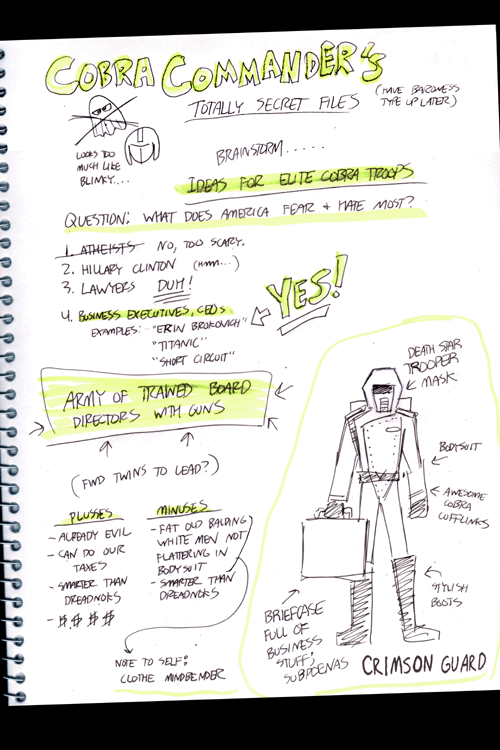 COBRA COMMANDER'S
TOTALLY SECRET FILES
(HAVE BARONESS
TYPE UP LATER)
LOOKS TOO
MUCH LIKE
BLINKY....
BRAINSTORM.....
IDEAS FOR ELITE COBRA TROOPS
QUESTION: WHAT DOES AMERICA FEAR + HATE MOST?
1. ATHEISTS NO, TOO SCARY.
2. HILLARY CLINTON (HMM...)
3. LAWYERS DUH!
4. BUSINESS EXECUTIVES, CEOs
YES!
EXAMPLES: -"ERIN BROKOVICH"
"TITANIC"
"SHORT CIRCUIT"
ARMY OF TRAINED BOARD
DIRECTORS WITH GUNS
(FWD TWINS TO LEAD?)
PLUSSES
- ALREADY EVIL
- CAN DO OUR
TAXES
- SMARTER THAN
DREADNOKS
- $ $ $ $
MINUSES
- FAT OLD BALDING
WHITE MEN NOT
FLATTERING IN
BODYSUIT
- SMARTER THAN
DREADNOKS
NOTE TO SELF:
CLOTHE MINDBENDER
DEATH STAR
TROOPER
MASK
BODYSUIT
AWESOME
COBRA
CUFFLINKS
STYLISH
BOOTS
BRIEFCASE
FULL OF
BUSINESS
STUFF,
SUBPOENAS
CRIMSON GUARD